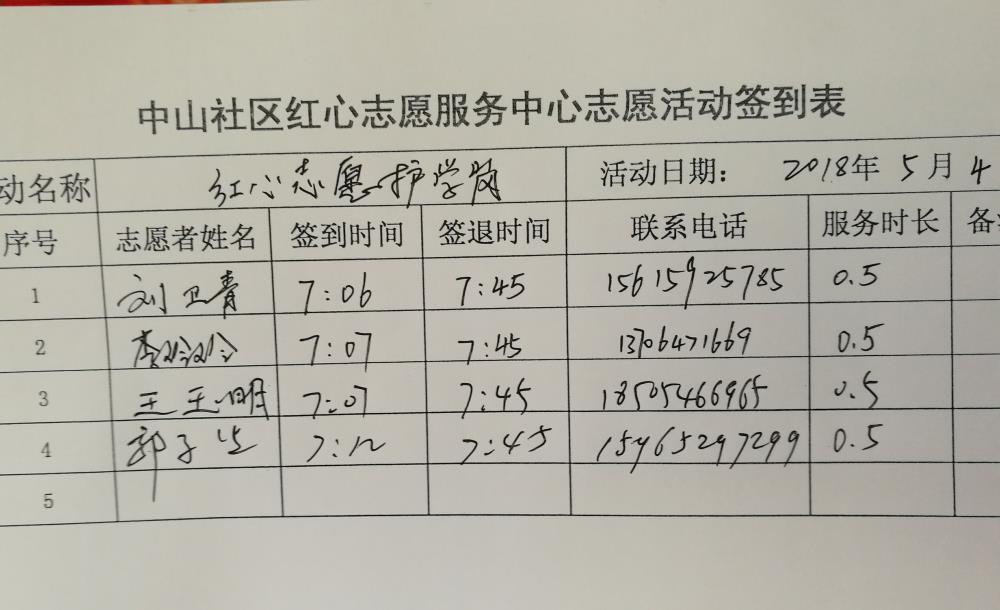 中山社区红心志愿服务中心志愿活动签到表
动名称 红心志愿护学岗 活动日期： 2018年 5月 4
序号 志愿者姓名 签到时间 签退时间 联系电话 服务时长 备
1 刘卫青 7:06 7:45 15615925785 0.5
2 7:07 7:45 13706471669 0.5
3 王 7:07 7:45 18505466965 0.5
4 郭子 7:12 7:45 15965297299 0.5
5